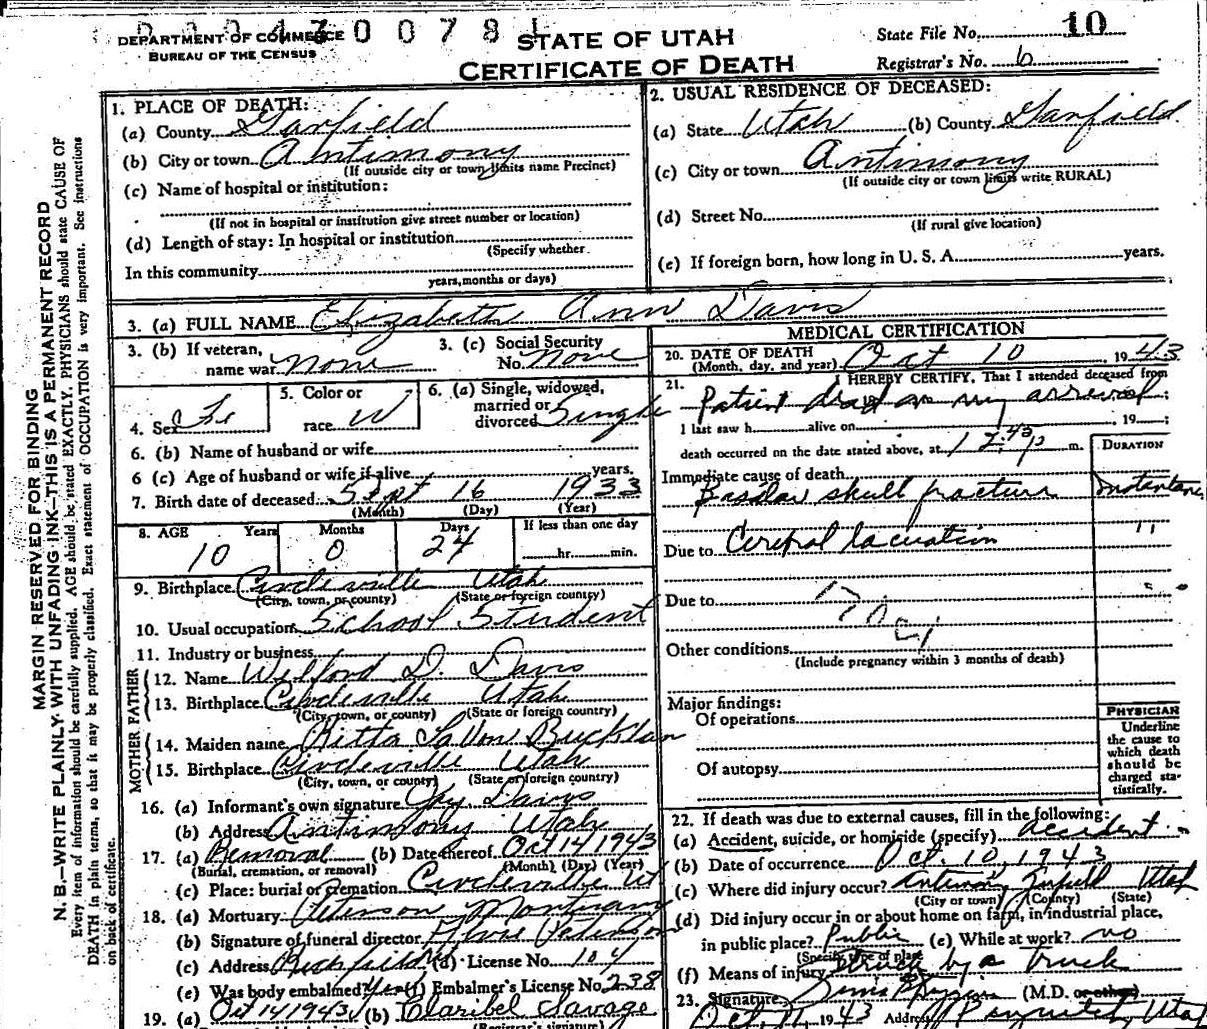 DEPARTMENT OF COMMERCE
BUREAU OF THE CENSUS
STATE OF UTAH
CERTIFICATE OF DEATH
State File No. 10
Registrar's No. 6
MARGIN RESERVED FOR BINDING
N. B.—WRITE PLAINLY WITH UNFADING INK—THIS IS A PERMANENT RECORD
Every item of information should be carefully supplied. AGE should be stated EXACTLY. PHYSICIANS should state CAUSE OF
DEATH in plain terms, so that it may be properly classified. Exact statement of OCCUPATION is very important. See instructions
on back of certificate.
1. PLACE OF DEATH:
(a) County Garfield
(b) City or town Antimony
(If outside city or town limits name Precinct)
(c) Name of hospital or institution:
(If not in hospital or institution give street number or location)
(d) Length of stay: In hospital or institution
(Specify whether
In this community
years, months or days)
2. USUAL RESIDENCE OF DECEASED:
(a) State Utah (b) County Garfield
(c) City or town Antimony
(If outside city or town limits write RURAL)
(d) Street No.
(If rural give location)
(e) If foreign born, how long in U. S. A. years.
3. (a) FULL NAME Elizabeth Ann Davis
3. (b) If veteran, name war none
3. (c) Social Security No. none
4. Sex Fe
5. Color or race W
6. (a) Single, widowed, married or divorced Single
6. (b) Name of husband or wife
6 (c) Age of husband or wife if alive years.
7. Birth date of deceased Sept 16 1933
(Month) (Day) (Year)
8. AGE Years Months Days If less than one day
10 0 24 hr. min.
9. Birthplace Circleville Utah
(City, town, or county) (State or foreign country)
10. Usual occupation School Student
11. Industry or business
FATHER
12. Name Wilford D. Davis
13. Birthplace Circleville Utah
(City, town, or county) (State or foreign country)
MOTHER
14. Maiden name
15. Birthplace Circleville Utah
(City, town, or county) (State or foreign country)
16. (a) Informant's own signature
(b) Address Antimony Utah
17. (a) Removal (b) Date thereof Oct 14 1943
(Burial, cremation, or removal) (Month) (Day) (Year)
(c) Place: burial or cremation Circleville Ut
18. (a) Mortuary Peterson Mortuary
(b) Signature of funeral director Peterson
(c) Address Richfield (d) License No. 104
(e) Was body embalmed? Yes (f) Embalmer's License No. 238
19. (a) Oct 14 1943 (b) Claribel Savage
(Registrar's signature)
MEDICAL CERTIFICATION
20. DATE OF DEATH Oct 10, 1943
(Month, day, and year)
21. I HEREBY CERTIFY, That I attended deceased from
Patient dead on my arrival
I last saw h alive on , 19 ;
death occurred on the date stated above, at 12:45 p m.
DURATION
Immediate cause of death
Basilar skull fracture
Due to
Due to
Other conditions
(Include pregnancy within 3 months of death)
Major findings:
Of operations
Of autopsy
PHYSICIAN
Underline
the cause to
which death
should be
charged sta-
tistically.
22. If death was due to external causes, fill in the following:
(a) Accident, suicide, or homicide (specify) accident
(b) Date of occurrence Oct. 10, 1943
(c) Where did injury occur? Utah
(City or town) (County) (State)
(d) Did injury occur in or about home on farm, in industrial place,
in public place? Public (e) While at work? no
(Specify type of place)
(f) Means of injury Struck by a Truck
23. Signature (M.D. or other)
Oct. 11, 1943 Address Panguitch, Utah